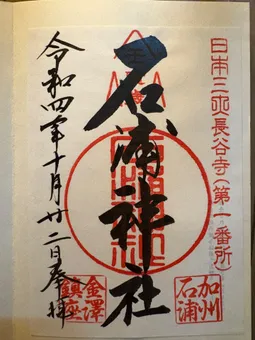 日本三所長谷寺(第一番所)
加州
石浦
石浦神社
令和四年十月廿二日奉拝
金澤
鎮座